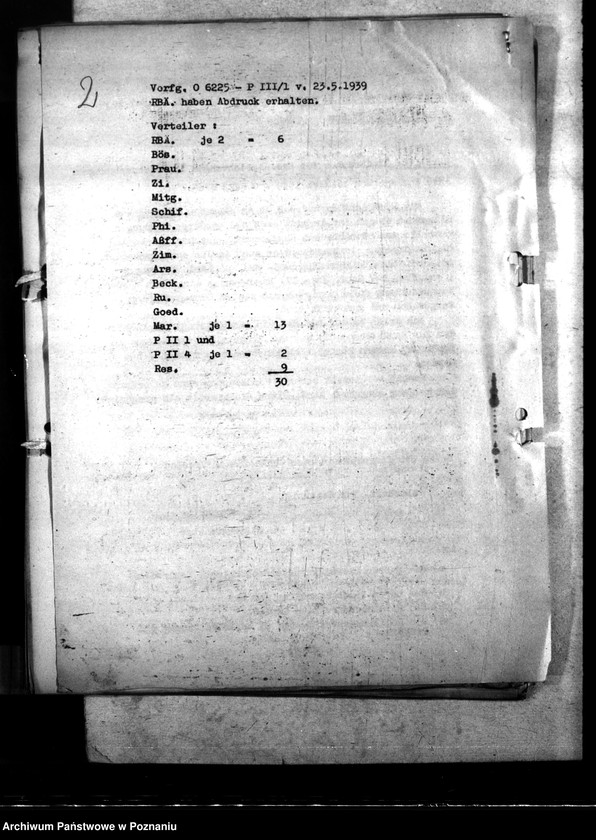 2
Verfg. O 6225 - P III/1 v. 23.5.1939
RBÄ. haben Abdruck erhalten.
Verteiler :
RBÄ. je 2 = 6
Bös.
Prau.
Zi.
Mitg.
Schif.
Phi.
Aßff.
Zim.
Ars.
Beck.
Ru.
Goed.
Mar. je 1 = 13
P II 1 und
P II 4 je 1 = 2
Res. 9
30
Archiwum Państwowe w Poznaniu